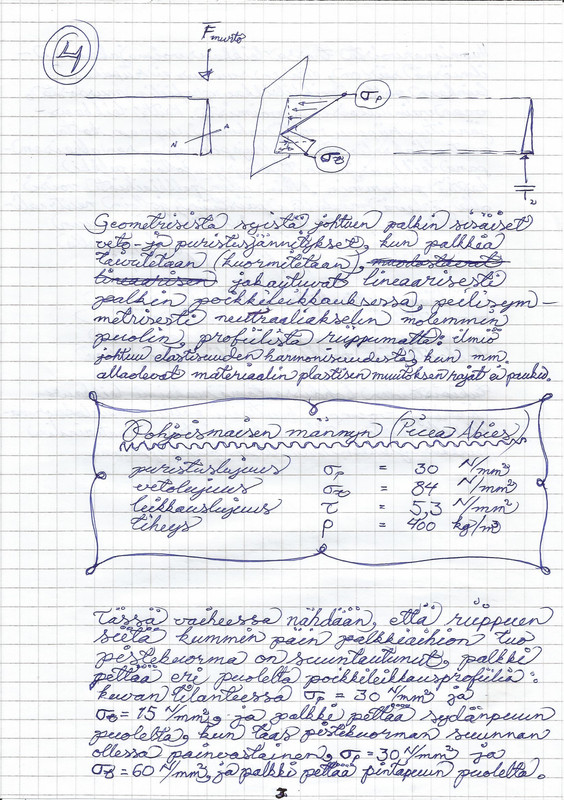 4
F murto
N A
σp
σt
T2
Geometrisista syistä johtuen palkin sisäiset
veto- ja puristusjännitykset, kun palkkia
taivutetaan (kuormitetaan), muodostavat
lineaarisen jakautuvat lineaarisesti
palkin poikkileikkauksessa, peilisym-
metrisesti neutraaliakselin molemmin
puolin, profiilista riippumatta: ilmiö
johtuu elastisuuden harmonisuudesta, kun mm.
allaolevat materiaalin plastisen muutoksen rajat ei pauku.
Pohjoismaisen männyn (Picea Abies)
puristuslujuus σp = 30 N/mm²
vetolujuus σt = 84 N/mm²
leikkauslujuus τ = 5,3 N/mm²
tiheys ρ = 400 kg/m³
Tässä vaiheessa nähdään, että riippuen
siitä kummin päin palkkiaihion tuo
pistekuorma on suuntautunut, palkki
pettää eri puolelta poikkileikkausprofiilia:
kuvan tilanteessa σp = 30 N/mm² ja
σt = 15 N/mm², ja palkki pettää sydänpuun
puolelta, kun taas pistekuorman suunnan
ollessa päinvastainen, σp = 30 N/mm² ja
σt = 60 N/mm², ja palkki pettää pintapuun puolelta.
3